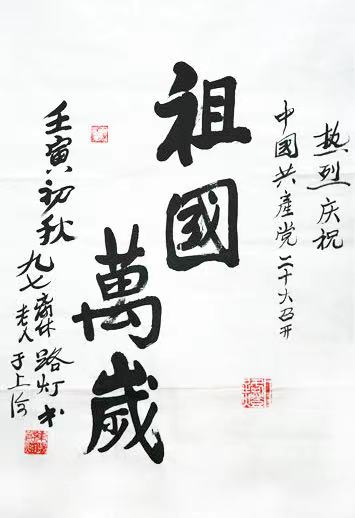 热烈庆祝
中國共產党二十大召开
祖國
萬歲
壬寅初秋
九七离休
老人
路灯书
于上海